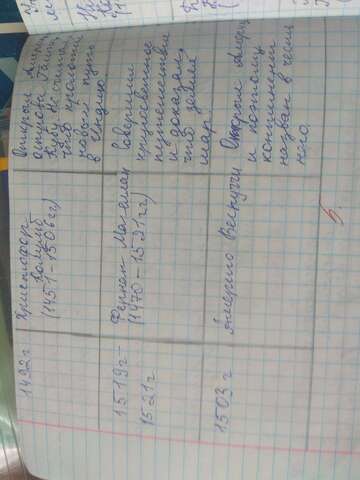 1492г
Христофор
Колумб
(1451-1506гг)
Открыл
острова Гаити,
Кубу. считал,
что проложил
новый путь
в Индию
1519г-
1521г
Фернан Магеллан
(1470-1521гг)
Совершил
кругосветное
путешествие
и доказал,
что земля
шар.
1503г
Америго Веспуччи
Открыл
и поэтому
континент
назван в честь
него.